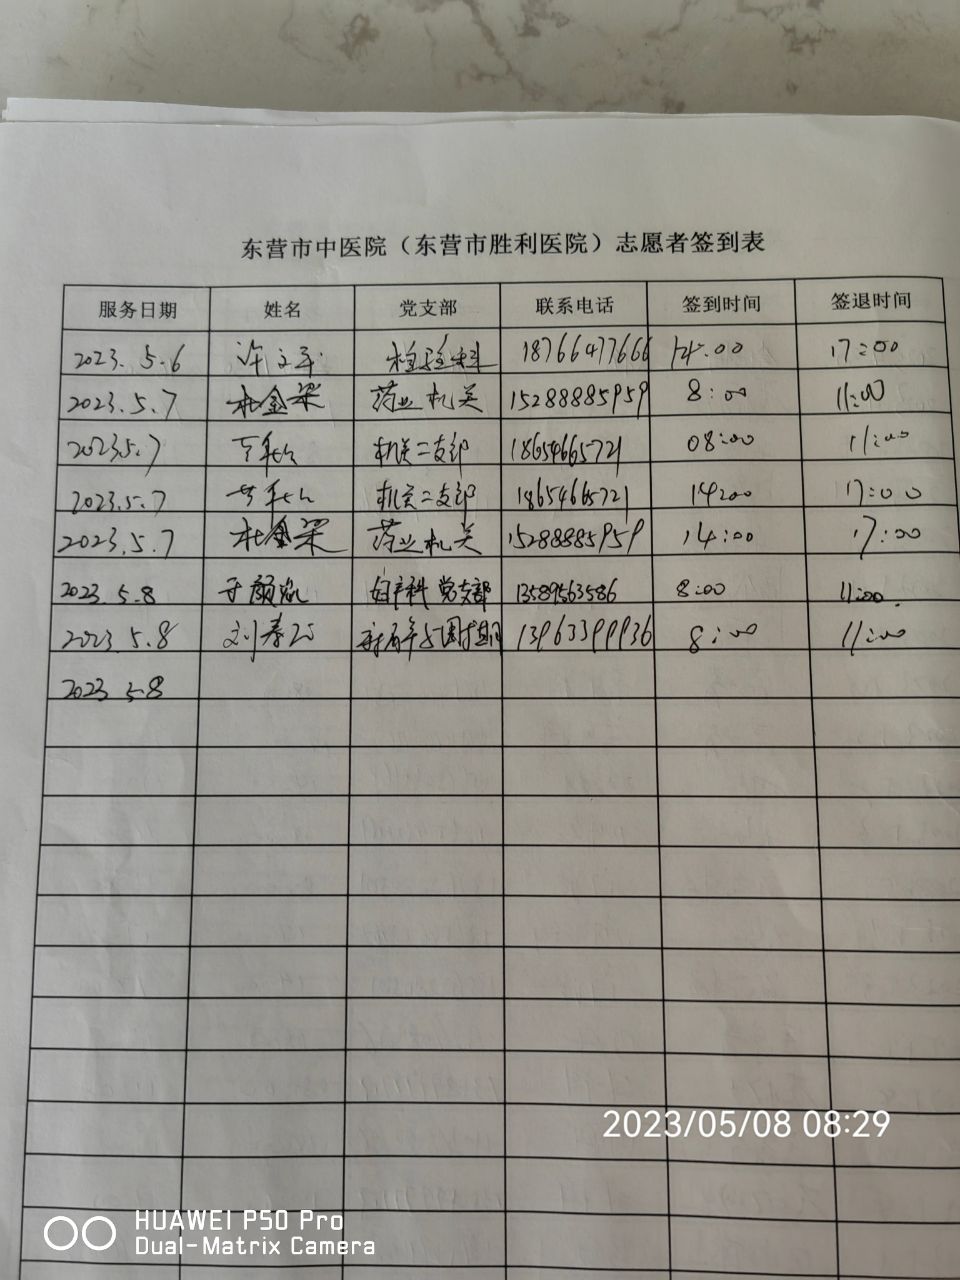 东营市中医院（东营市胜利医院）志愿者签到表
服务日期 姓名 党支部 联系电话 签到时间 签退时间
2023.5.6 许文军 检验科 18766477666 14:00 17:00
2023.5.7 杜金梁 药业机关 15288885959 8:00 11:00
2023.5.7 机关二支部 18654665721 08:00 11:00
2023.5.7 机关二支部 18654665721 14:00 17:00
2023.5.7 杜金梁 药业机关 15288885959 14:00 17:00
2023.5.8 于颜 妇产科党支部 13589563586 8:00 11:00.
2023.5.8 刘春 13963399936 8:00 11:00
2023 5.8
2023/05/08 08:29
HUAWEI P50 Pro
Dual-Matrix Camera